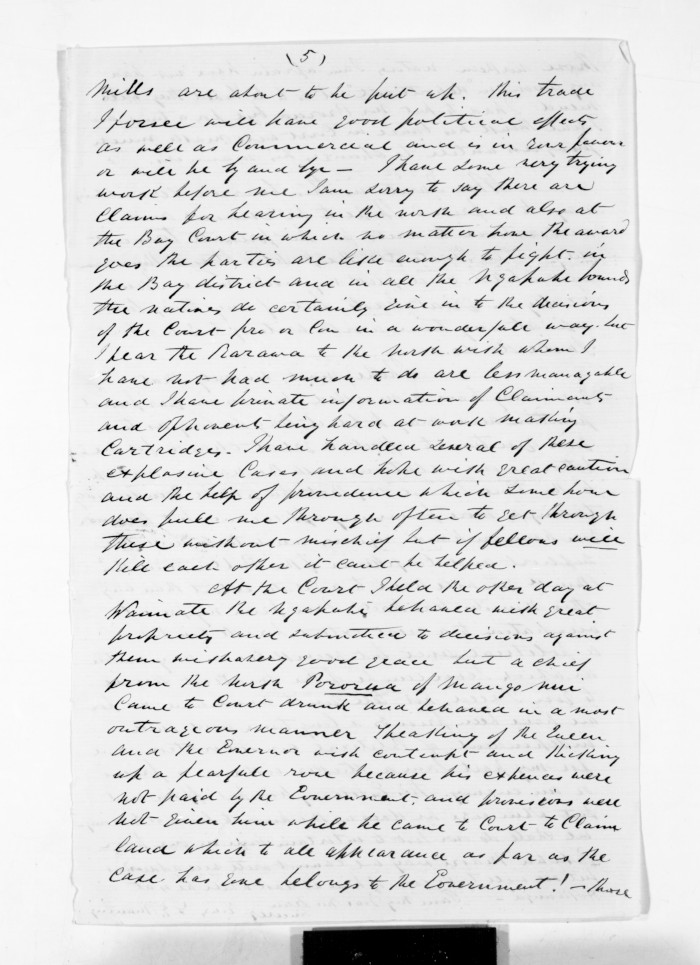 (5)
Mills are about to be put up. This trade
I forsee will have good political effects
as well as Commercial and is in your favour
or will be by and bye — I have some very trying
work before me I am sorry to say there are
Claims for hearing in the north and also at
the Bay Court in which no matter how the award
goes the parties are like enough to fight. in
the Bay district and in all the Ngapuhi bounds
the natives do certainly give in to the decisions
of the Court pro or Con in a wonderfull way. but
I fear the Rarawa to the North with whom I
have not had much to do are less managable
and I have private information of Claimants
and opponents being hard at work making
Cartridges. I have handled several of these
explosive Cases and hope with great caution
and the help of providence which some how
does pull me through often to get through
these without mischief but if fellows will
Kill each other it cant be helped.
At the Court I held the other day at
Waimate the Ngapuhi behaved with great
propriety and submitted to decisions against
them with a very good grace but a chief
from the North Pororua of Mango nui
Came to Court drunk and behaved in a most
outrageous manner speaking of the Queen
and the Governor with contempt and Kicking
up a fearfull row because his expences were
not paid by the Government, and provisions were
not given him while he came to Court to Claim
land which to all appearance as far as the
case has gone belongs to the Government! — those